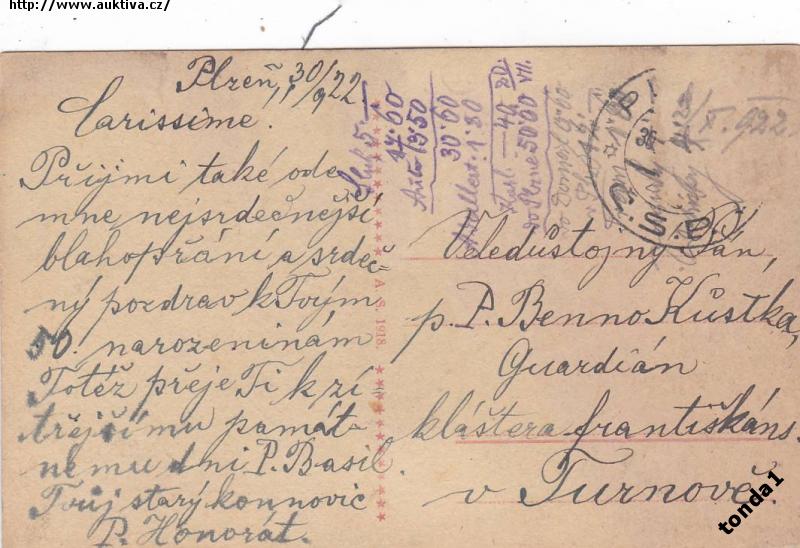 http://www.auktiva.cz/
Plzeň, 30/11 922
Carissime.
Přijmi také ode
mne nejsrdečnější
blahopřání a srdeč-
ný pozdrav k Tvým
50. narozeninám
Totéž přeje Ti k zí
třejšímu památ-
nému dni P. Basil.
Tvůj starý konnovic
P. Honorát.
A. S. 1918.
17·60
Auto 13·50
30·60
1·80
do Plzně 50·00
X. 922
Veledůstojný Pán,
p. P. Benno Kůstka,
Guardián
kláštera františkáns.
v Turnově.
tonda1